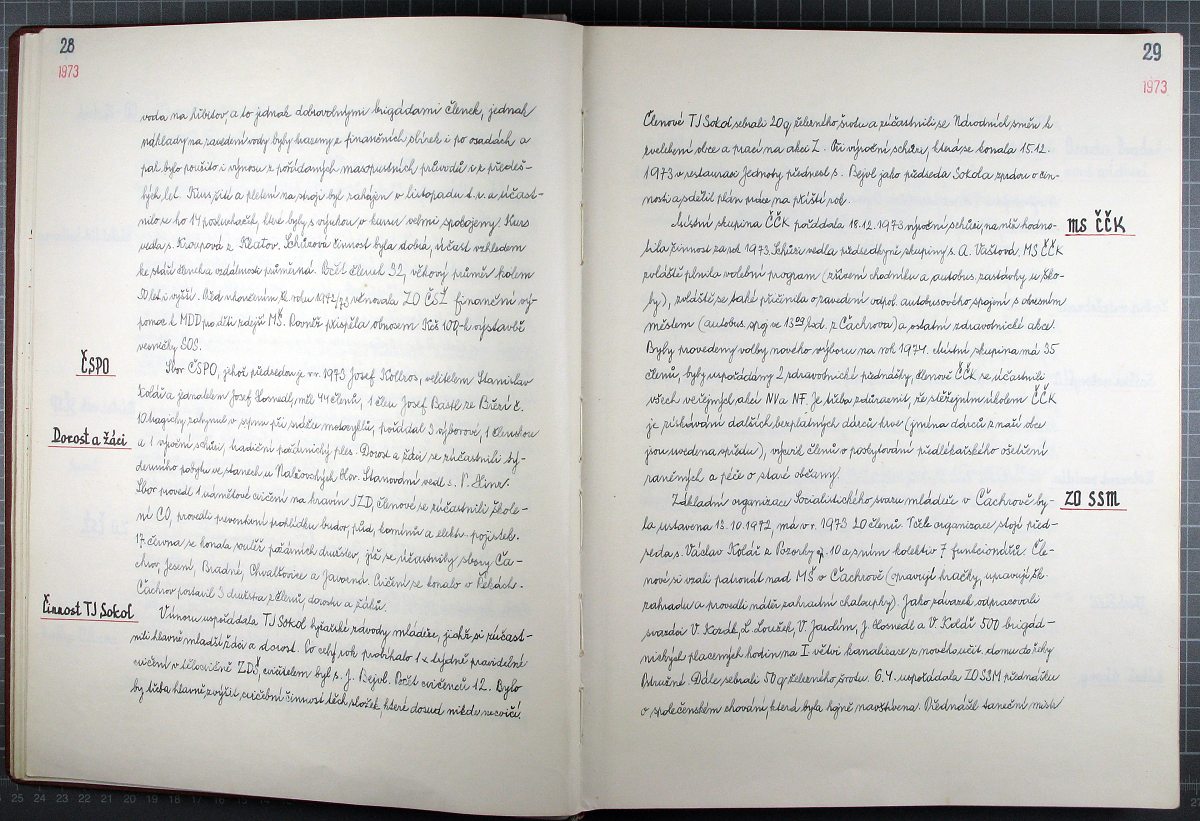 28
1973
voda na hřbitov, a to jednak dobrovolnými brigádami členek, jednak
náklady na zavedení vody byly hrazeny z finančních sbírek i po osadách a
pak bylo použito i výnosu z pořádaných masopustních průvodů i z předeš-
lých let. Kurs šití a pletení na stroji byl zahájen v listopadu t.r. a účast-
nilo se ho 14 posluchaček, které byly s výukou v kursu velmi spokojeny. Kurs
vedla s. z Klatov. Schůzová činnost byla dobrá, účast vzhledem
ke stáří členek a vzdálenosti průměrná. Počet členek 32, věkový průměr kolem
50 let i vyšší. Před ukončením šk. roku 1972/73 věnovala ZO ČSŽ finanční vý-
pomoc k MDD pro děti zdejší MŠ. Rovněž přispěla obnosem Kčs 100,- k výstavbě
vesničky SOS.
ČSPO
Sbor ČSPO, jehož předsedou je v r. 1973 Josef Kollros, velitelem Stanislav
Kolář a jednatelem Josef Hosnedl, měl 44 členů, 1 člen Josef Bastl ze Březí č.
10 tragicky zahynul v srpnu při srážce motocyklů, pořádal 3 výborové, 1 členskou
Dorost a žáci
a 1 výroční schůzi, tradiční požárnický ples. Dorost a žáci se zúčastnili tý-
denního pobytu ve stanech u Nalžovských Hor. Stanování vedl s. P.
Sbor provedl 1 námětové cvičení na kravín JZD, členové se zúčastnili škole-
ní CO, provedli preventivní prohlídku budov, půd, komínů a elektr. pojistek.
17. června se konala soutěž požárních družstev, jíž se účastnily sbory Ča-
chrov, Jesení, Bradné, Chvalšovice a Javorná. Cvičení se konalo v
Čachrov postavil 3 družstva z členů, dorostu a žáků.
Činnost TJ Sokol
V únoru uspořádala TJ Sokol lyžařské závody mládeže, jichž se zúčast-
nili hlavně mladší žáci a dorost. Po celý rok probíhalo 1x týdně pravidelné
cvičení v tělocvičně ZDŠ, cvičitelem byl s. J. Bejvl. Počet cvičenců 12. Bylo
by třeba hlavně zvýšit cvičební činnost těch složek, které dosud nikde necvičí.
29
1973
Členové TJ Sokol sebrali 20 q železného šrotu a zúčastnili se Národních směn k
zvelebení obce a prací na akci Z. Při výroční schůzi, která se konala 15.12.
1973 v restauraci Jednoty přednesl s. Bejvl jako předseda Sokola zprávu o čin-
nosti a sdělil plán práce na příští rok.
MS ČČK
Místní skupina ČČK pořádala 18.12.1973 výroční schůzi, na níž hodno-
tila činnost za rok 1973. Schůzi vedla předsedkyně skupiny s. A. Vaštová. MS ČČK
zvláště plnila volební program (zřízení chodníku a autobus. zastávky u ško-
ly), zvláště se také přičinila o zavedení odpol. autobusového spojení s okresním
městem (autobus. spoj ve 13 hod. z Čachrova) a ostatní zdravotnické akce.
Byly provedeny volby nového výboru na rok 1974. Místní skupina má 35
členů, byly uspořádány 2 zdravotnické přednášky, členové ČČK se účastnili
všech veřejných akcí NV a NF. Je třeba zdůraznit, že stěžejním úkolem ČČK
je získávání dalších bezplatných dárců krve (jména dárců z naší obce
jsou uvedena vpředu), výcvik členů v poskytování předlékařského ošetření
raněných a péče o staré občany.
ZO SSM
Základní organizace Socialistického svazu mládeže v Čachrově by-
la ustavena 13.10.1972, má v r. 1973 20 členů. V čele organizace stojí před-
seda s. Václav Kolář z čp. 10 a s ním kolektiv 7 funkcionářů. Čle-
nové si vzali patronát nad MŠ v Čachrově (opravují hračky, upravují šk.
zahradu a provedli nátěr zahradní chaloupky). Jako závazek odpracovali
svazáci V. Kozák, L. Loužek, V. Jandím, J. Hosnedl a V. Kolář 500 brigád-
nických placených hodin na I. větvi kanalizace z nového učit. domu do řeky
Ostružné. Dále sebrali 50 q železného šrotu. 6.4. uspořádala ZO SSM přednášku
o společenském chování, která byla hojně navštívena. Přednášel taneční mistr